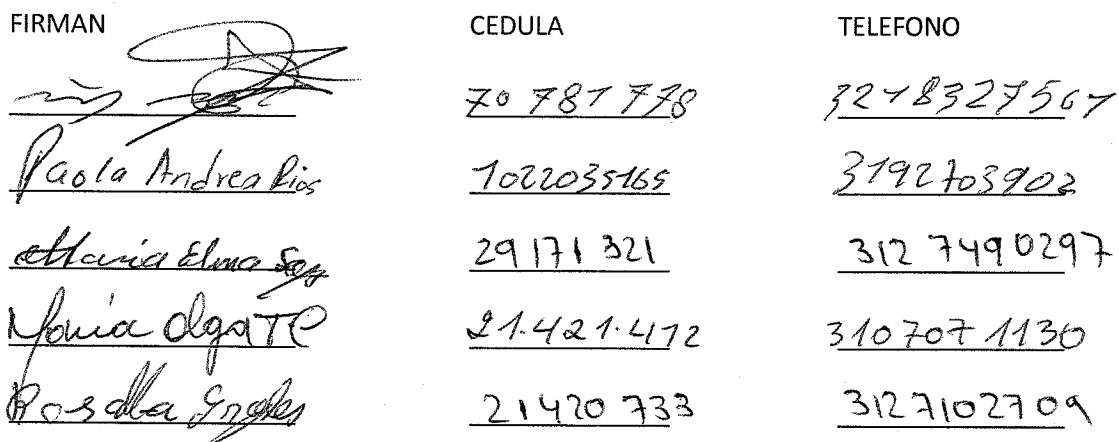 FIRMAN CEDULA TELEFONO
70 781 778 3218327561
Paola Andrea Rios 1022035165 3192703902
Maria Elma 29171 321 312 7490297
Maria Olga TC 21.421.412 310 707 1130
Rosalba 21420 733 3127102709